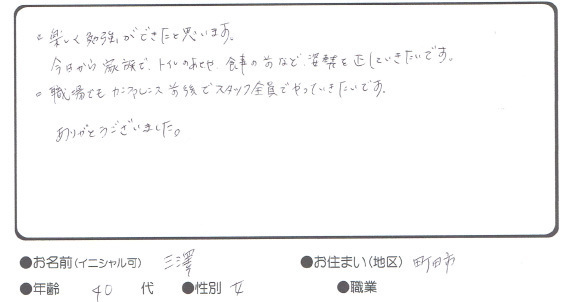 。楽しく勉強ができたと思います。
今日から家族で、トイレのあとや、食事の前など、姿勢を正していきたいです。
。職場でもカンファレンス前後でスタッフ全員でやっていきたいです。
ありがとうございました。
●お名前(イニシャル可) 三澤 ●お住まい(地区) 町田市
●年齢 40 代 ●性別 女 ●職業